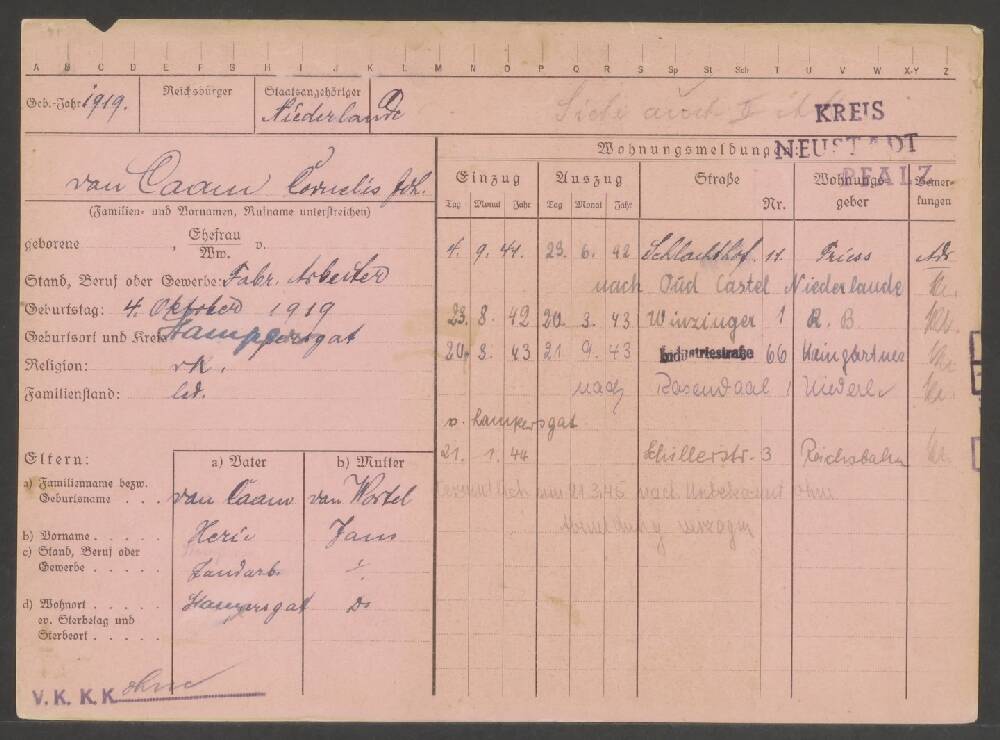 A B C D E F G H I J K L M N O P Q R S Sp St Sch T U V W X-Y Z
Geb.-Jahr 1919.
Reichsbürger
Staatsangehöriger
Niederlande
Siehe auch
KREIS
NEUSTADT
PFALZ
van Caam Cornelis Joh.
(Familien- und Vornamen, Rufname unterstreichen)
geborene , Ehefrau v.
Ww.
Stand, Beruf oder Gewerbe: Fabr. Arbeiter
Geburtstag: 4. Oktober 1919
Geburtsort und Kreis Stampersgat
Religion: rk.
Familienstand: led.
Eltern:
a) Vater
b) Mutter
a) Familienname bezw. Geburtsname . . . van Caam van Wortel
b) Vorname . . . . . Jans
c) Stand, Beruf oder Gewerbe . . . . . Landarb.
d) Wohnort . . . . . Stampersgat Do
ev. Sterbetag und
Sterbeort . . . . .
V. K. K. K. ohne
Wohnungsmeldungen:
Einzug Auszug Straße Nr. Wohnungsgeber Bemerkungen
Tag Monat Jahr Tag Monat Jahr
4. 9. 41. 23. 6. 42 Schlachthof. 11. Friess
nach Oud Castel Niederlande
23. 8. 42 20. 3. 43 Winzinger 1 R. B.
20. 3. 43 21 9. 43 Industriestraße 66 Haingärtner
nach Rosendaal Niederl.
v. Stampersgat
21. 1. 44 Schillerstr. 3 Reichsbahn
am 21.3.45 nach Unbekannt ohne
Abmeldung verzogen